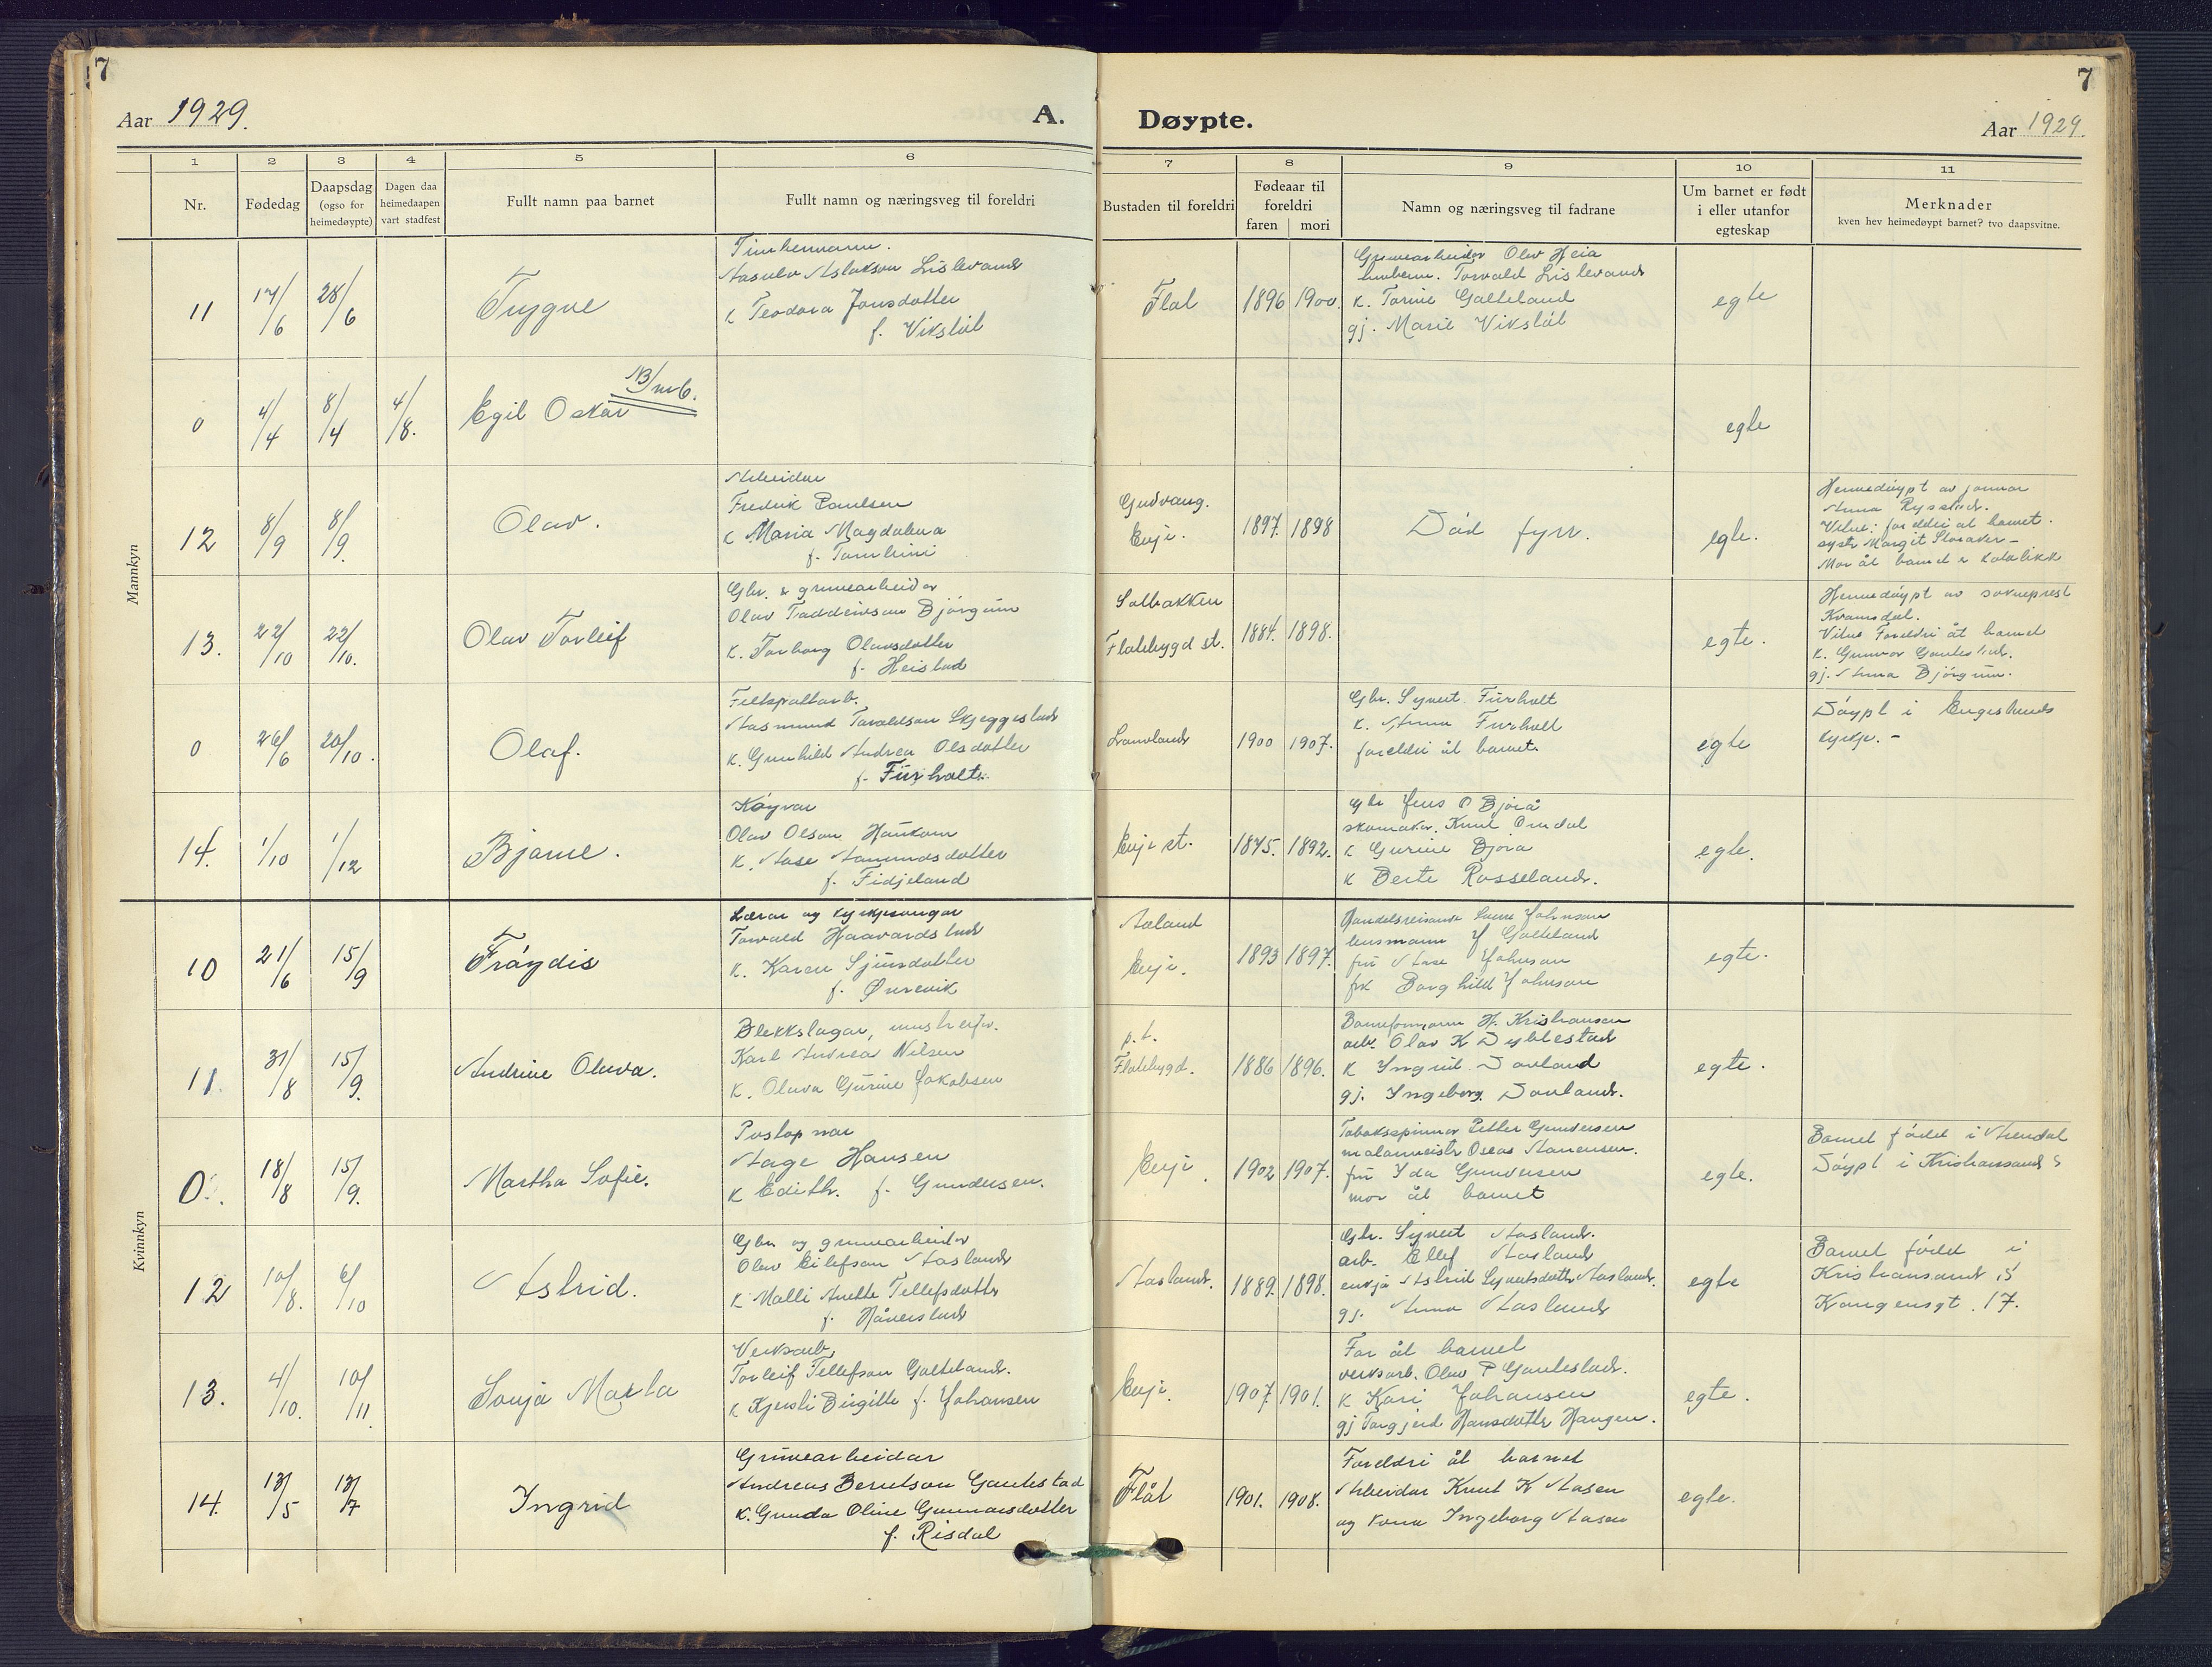 7
7
Aar 1929.
A.
Døypte.
Aar 1929.
1 2 3 4 5 6 7 8 9 10 11
Nr.
Fødedag
Daapsdag
(ogso for
heimedøypte)
Dagen daa
heimedaapen
vart stadfest
Fullt namn paa barnet
Fullt namn og næringsveg til foreldri
Bustaden til foreldri
Fødeaar til
foreldri
faren mori
Namn og næringsveg til fadrane
Um barnet er født
i eller utanfor
egteskap
Merknader
kven hev heimedøypt barnet? tvo daapsvitne.
Mannkyn
11 17/6 28/6 Trygve
Aasulv Aslakson Lislevand
k Teodora Jonsdotter
f. Vikstøl
Flat 1896 1900.
Gruvearbeider Olav Heia
Torvald Lislevand
k. Torine Galteland
gj. Marie Vikstøl
egte
0 4/4 8/4 4/8. Egil Oskar
egte
12 8/9 8/9. Olav.
Arbeidar
Fredrik Paulsen
k Maria Magdalena
f.
Gudvang.
Evje.
1897. 1898
Død fyrr.
egte.
Heimedøypt av jormor
Anna Rysstad.
Vitne: foreldri at barnet.
syster Margit Storaker –
Mor åt barnet e katolikk
13. 22/10 22/10. Olav Torleif
Gbr. & gruvearbeidar
Olav Taddeivson Bjørgum
k. Torborg Olavsdotter
f. Heistad
Solbakken
Flatebygd st.
1884. 1898.
egte.
Heimedøypt av sokneprest
Kvamsdal.
Vitne Foreldri åt barnet
k. Gunvor Gautestad.
gj. Anna Bjørgum.
0 26/6 20/10. Olaf.
Feltspatarb.
Aasmund Taraldson Skjeggestad
k. Gunhild Andrea Olsdotter
f. Furholt.
1900 1907.
Gbr. Syvert Furholt
k. Anna Furholt
foreldri åt barnet.
egte
Døypt i Engeslands
kyrkje. –
14. 1/10 1/12 Bjarne.
Køyrar
Olav Olson Haukom
k. Aase Aamundsdotter
f. Fidjeland
Evje st. 1875. 1892.
Gbr Jens O Bjørå
skomaker. Knut Omdal
k Gurine Bjørå
k Berte Rosseland.
egte.
Kvinnkyn
10 21/6 15/9 Frøydis
Lærar og kyrkjesongar
Torvald Haavardstad
k. Karen Sjursdotter
f.
Aaland
Evje.
1893 1897.
Handelsreisande Johnson
lensmann J Galteland
fru Aase Johnson
frk Borghild Johnson
egte.
11. 31/8 15/9. Andrine Olava.
Blekkslagar,
Karl Andrea Nilsen
k. Olava Gurine Jakobsen
p.t.
Flatebygd. 1886 1896.
Baneformann H. Kristiansen
arb. Olav K Dyblestad
k Yngvil Dovland
gj. Ingeborg Dovland.
egte.
0. 18/8 15/9. Martha Sofie.
Postopnar
Aage Hansen
k Edith. f. Gundersen.
Evje. 1902 1907.
Tobaksspinnar Petter Gundersen
malarmeistr Oscar Aanensen.
fru Ida Gundersen
mor åt barnet
egte.
Barnet fødd i Arendal
Døypt i Kristiansand S
12 10/8. 6/10 Astrid.
Gbr. og gruvearbeidar
Olav Eilefson Aasland
k Malli Anette Tellefsdotter
f. Håverstad
Aasland. 1889. 1898.
Gbr. Syvert Aasland.
arb. Ellef Aasland
enkja Astrid Syvertsdotter Aasland.
gj. Anna Aasland
egte
Barnet fødd i
Kristiansand S
Kongensgt. 17.
13. 4/10. 10/11. Sonja Marta
Verksarb.
Torleif Tellefson Galteland.
k Kjersti Birgitte f. Johansen
Evje. 1907. 1901.
Far åt barnet
verksarb. Olav P Gautestad.
k Kari Johansen
gj Torgjerd Hansdotter Haugen.
egte.
14. 13/5 13/7 Ingrid
Gruvearbeidar
Andreas Berntson Gautestad
k. Gunda Oline Gunnarsdotter
f. Risdal
Flåt 1901. 1908.
Foreldri åt barnet
Arbeidar Knut K Aasen
og kona Ingeborg Aasen
egte.